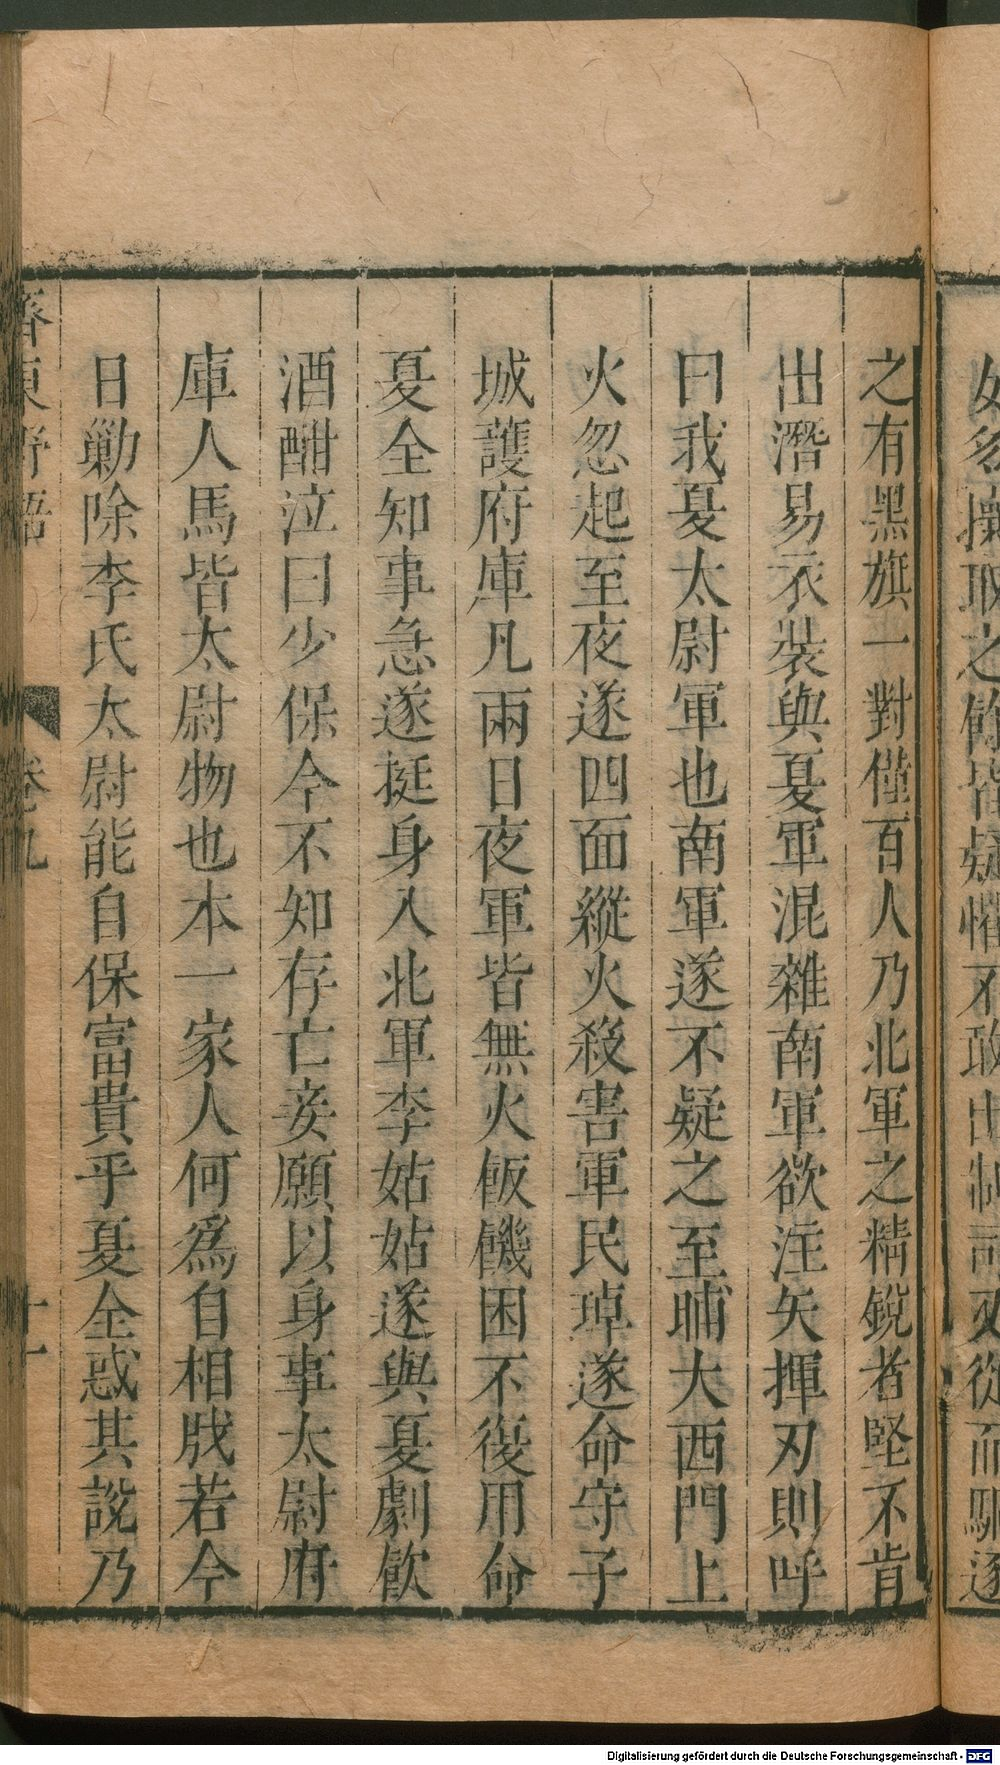 之有黑旗一對僅百人乃北軍之精銳者堅不肯
出潛易衣裝與夏軍混雜南軍欲注矢揮刃則呼
曰我夏太尉軍也南軍遂不疑之至晡大西門上
火忽起至夜遂四面縱火殺害軍民琸遂命守子
城護府庫凡兩日夜軍皆無火飯饑困不復用命
夏全知事急遂挺身入北軍李姑姑遂與夏劇飲
酒酣泣曰少保今不知存亡妾願以身事太尉府
庫人馬皆太尉物也本一家人何爲自相戕若今
日勦除李氏太尉能自保富貴乎夏全惑其說乃
齊東野語 卷九 十一
操取之餘皆疑懼不敢出制司又從而驅逐
Digitalisierung gefördert durch die Deutsche Forschungsgemeinschaft - DFG